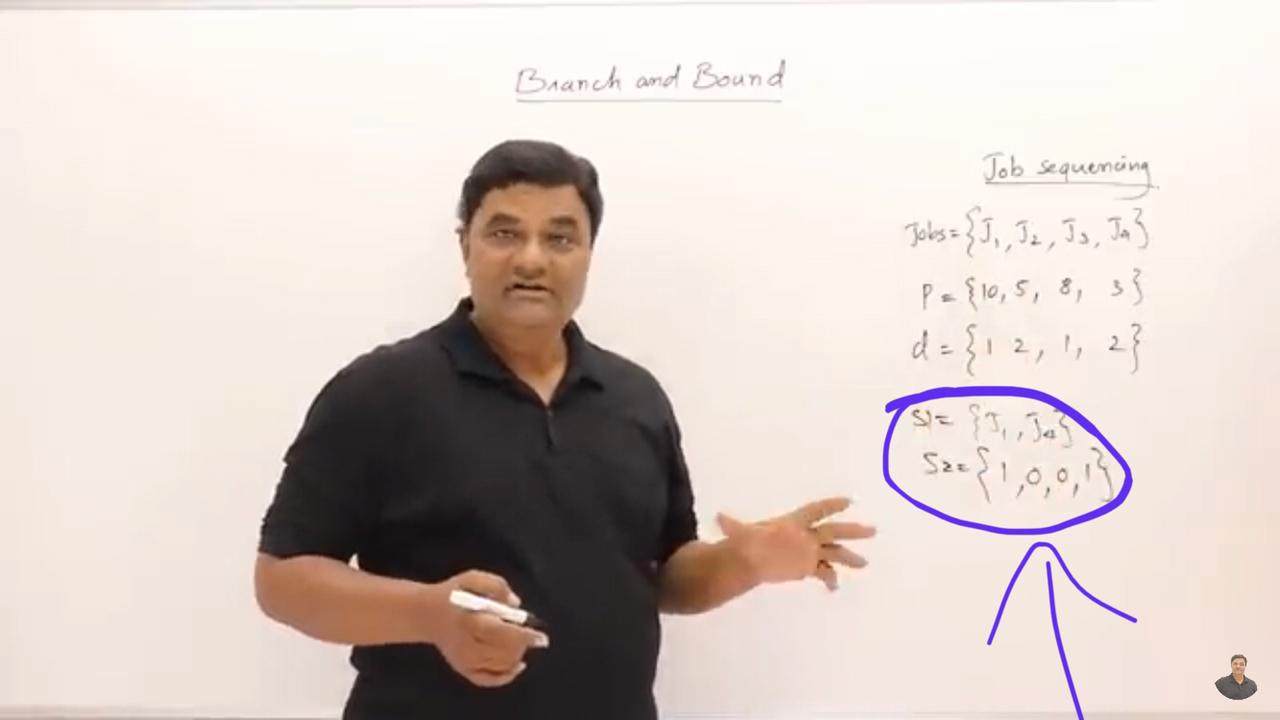 Branch and Bound
Job sequencing
Jobs = {J1, J2, J3, J4}
P = {10, 5, 8, 3}
d = {1 2, 1, 2}
S1 = {J1, J4}
S2 = {1, 0, 0, 1}